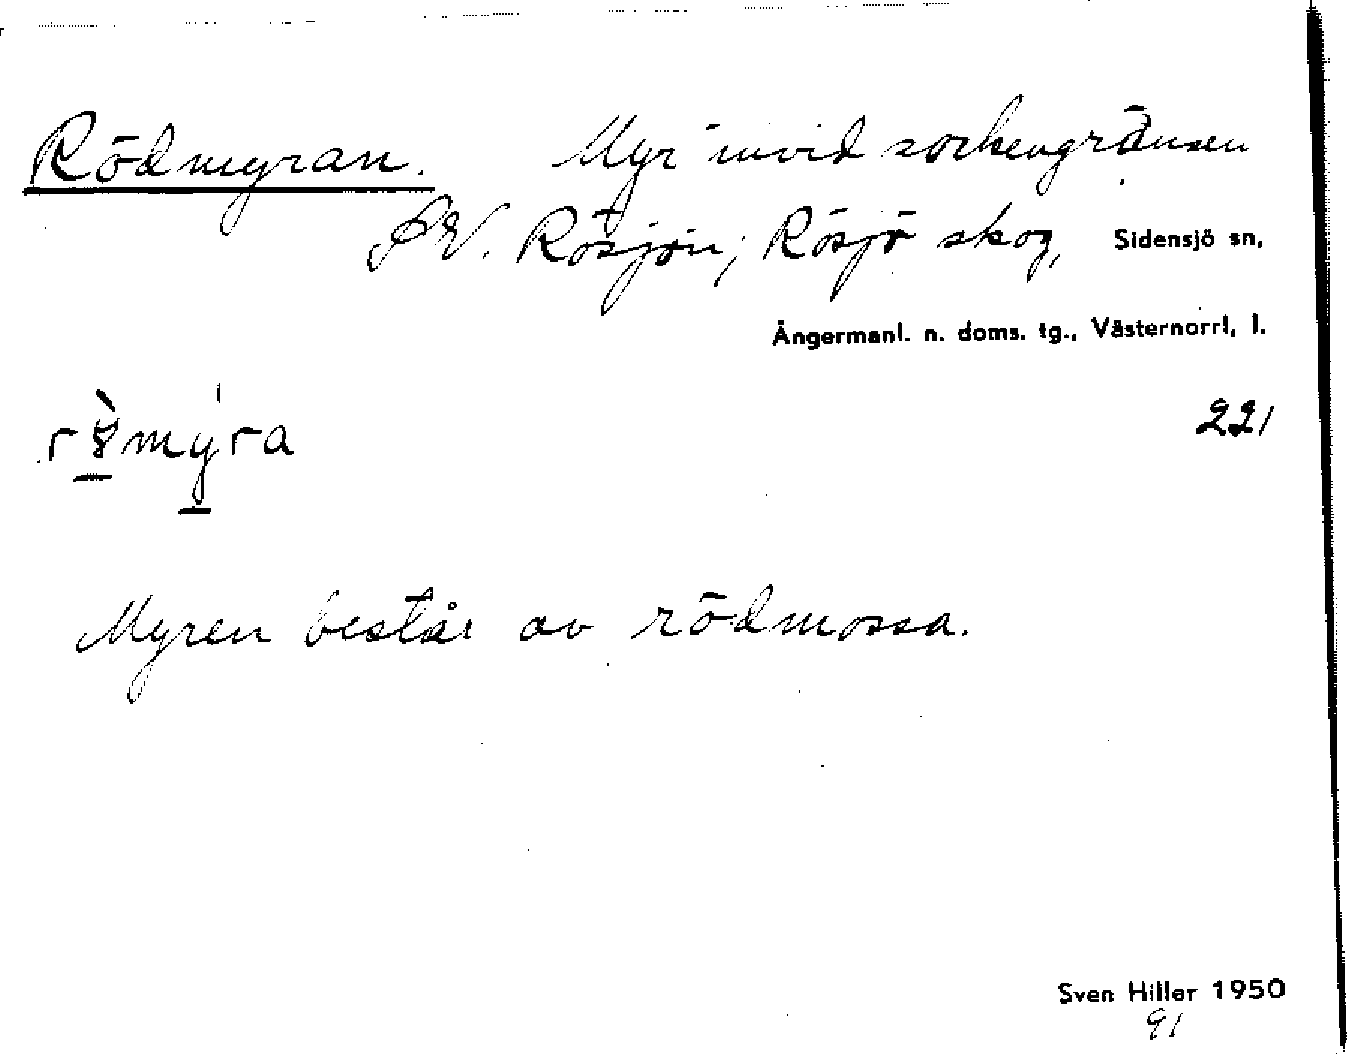 Rödmyran. Myr invid sockengränsen
SV. Rösjön; Rösjö skog, Sidensjö sn,
Ångermanl. n. doms. tg., Västernorrl. l.
221
Myren består av rödmossa.
Sven Hiller 1950
91